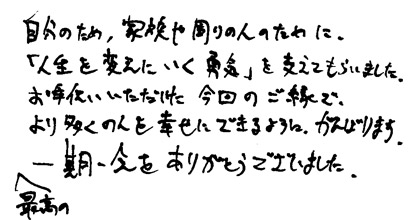 自分のため、家族や周りの人のために。
「人生を変えにいく勇気」を支えてもらいました。
お手伝いいただけた今回のご縁で、
より多くの人を幸せにできるように、がんばります。
一期一会をありがとうございました。
最高の